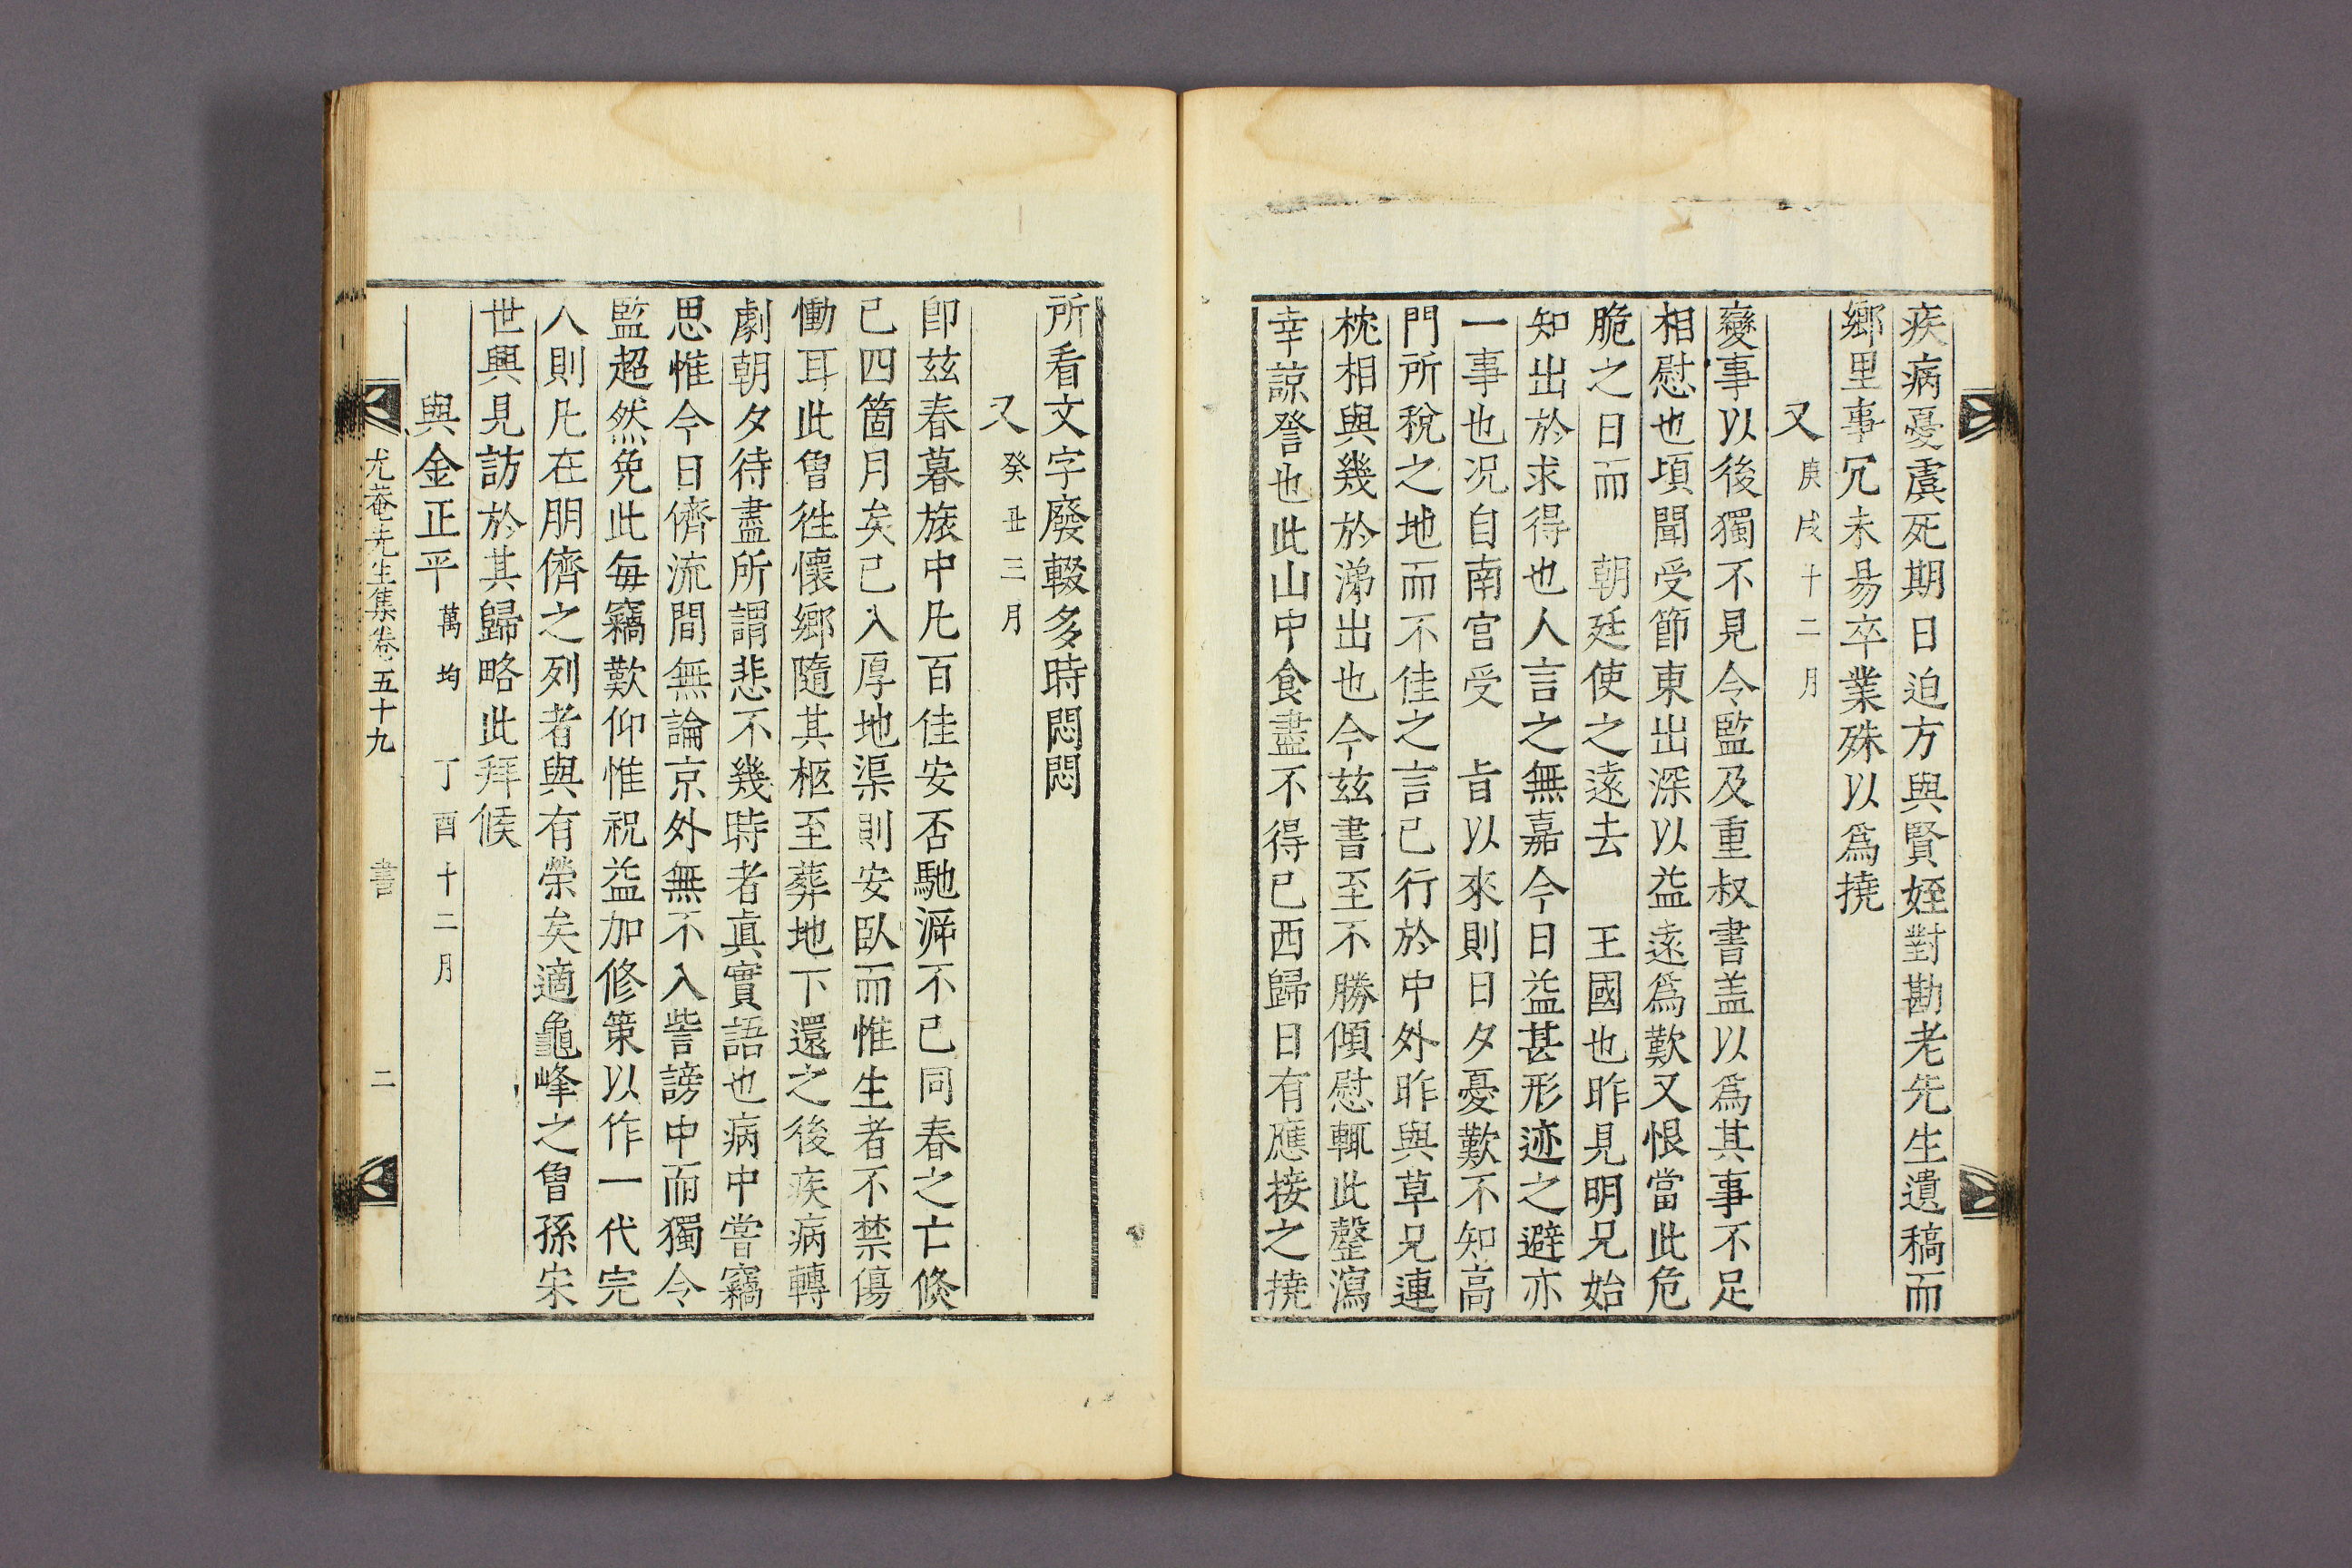 疾病憂虞死期日迫方與賢姪對勘老先生遺稿而
鄉里事冗未易卒業殊以爲撓
又 庚戌十二月
變事以後獨不見令監及重叔書盖以爲其事不足
相慰也頃聞受節東出深以益遠爲歎又恨當此危
脆之日而 朝廷使之遠去 王國也昨見明兄始
知出於求得也人言之無嘉今日益甚形迹之避亦
一事也况自南宮受 旨以來則日夕憂歎不知高
門所稅之地而不佳之言已行於中外昨與草兄連
枕相與幾於涕出也今玆書至不勝傾慰輒此罄瀉
幸諒詧也此山中食盡不得已西歸日有應接之撓
所看文字廢輟多時悶悶
又 癸丑三月
卽玆春暮旅中凡百佳安否馳㴑不已同春之亡倐
已四箇月矣已入厚地渠則安臥而惟生者不禁傷
慟耳此曾徃懷鄉隨其柩至葬地下還之後疾病轉
劇朝夕待盡所謂悲不幾時者眞實語也病中嘗竊
思惟今日儕流間無論京外無不入訾謗中而獨令
監超然免此每竊歎仰惟祝益加修策以作一代完
人則凡在朋儕之列者與有榮矣適龜峰之曾孫宋
世興見訪於其歸略此拜候
與金正平 萬均 丁酉十二月
尤菴先生集卷五十九 書 二